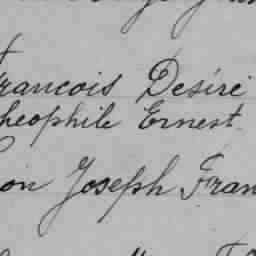 francois Désiré
heophile Ernest.
on Joseph Fran